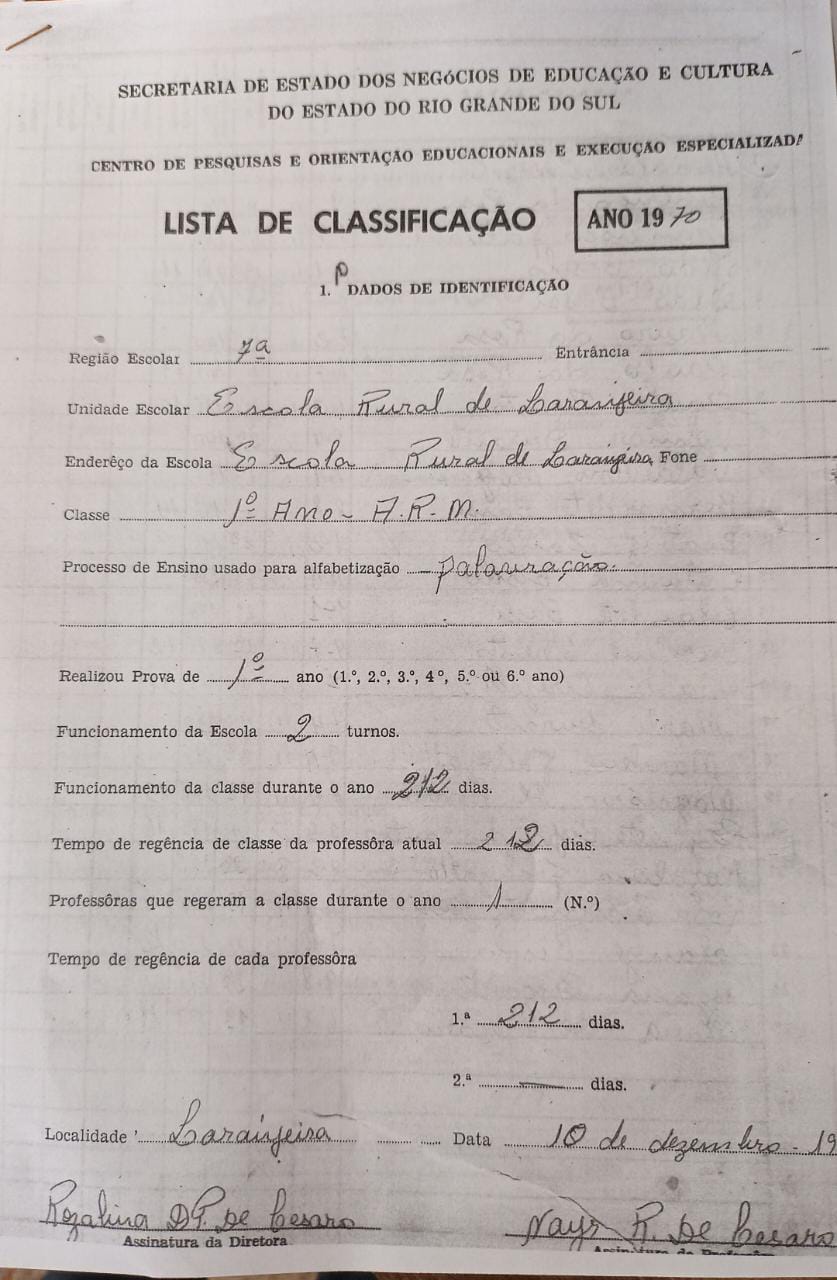 SECRETARIA DE ESTADO DOS NEGÓCIOS DE EDUCAÇÃO E CULTURA
DO ESTADO DO RIO GRANDE DO SUL
CENTRO DE PESQUISAS E ORIENTAÇÃO EDUCACIONAIS E EXECUÇÃO ESPECIALIZADA
LISTA DE CLASSIFICAÇÃO ANO 1970
1. DADOS DE IDENTIFICAÇÃO
Região Escolar 7ª Entrância
Unidade Escolar Escola Rural de Laranjeira
Enderêço da Escola Escola Rural de Laranjeira Fone
Classe 1º Ano - A.R.M.
Processo de Ensino usado para alfabetização palavração.
Realizou Prova de 1º ano (1.º, 2.º, 3.º, 4º, 5.º ou 6.º ano)
Funcionamento da Escola 2 turnos.
Funcionamento da classe durante o ano 212 dias.
Tempo de regência de classe da professôra atual 212 dias.
Professôras que regeram a classe durante o ano 1 (N.º)
Tempo de regência de cada professôra
1.ª 212 dias.
2.ª — dias.
Localidade Laranjeira Data 10 de dezembro - 19
Rozalina D. P. De Cesaro Nayr R. De Cesaro
Assinatura da Diretora Assinatura da